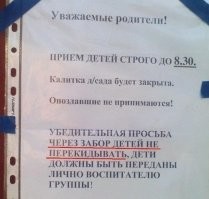 Уважаемые родители!
ПРИЕМ ДЕТЕЙ СТРОГО ДО 8.30.
Калитка д/сада будет закрыта.
Опоздавшие не принимаются!
УБЕДИТЕЛЬНАЯ ПРОСЬБА
ЧЕРЕЗ ЗАБОР ДЕТЕЙ НЕ
ПЕРЕКИДЫВАТЬ, ДЕТИ
ДОЛЖНЫ БЫТЬ ПЕРЕДАНЫ
ЛИЧНО ВОСПИТАТЕЛЮ
ГРУППЫ!